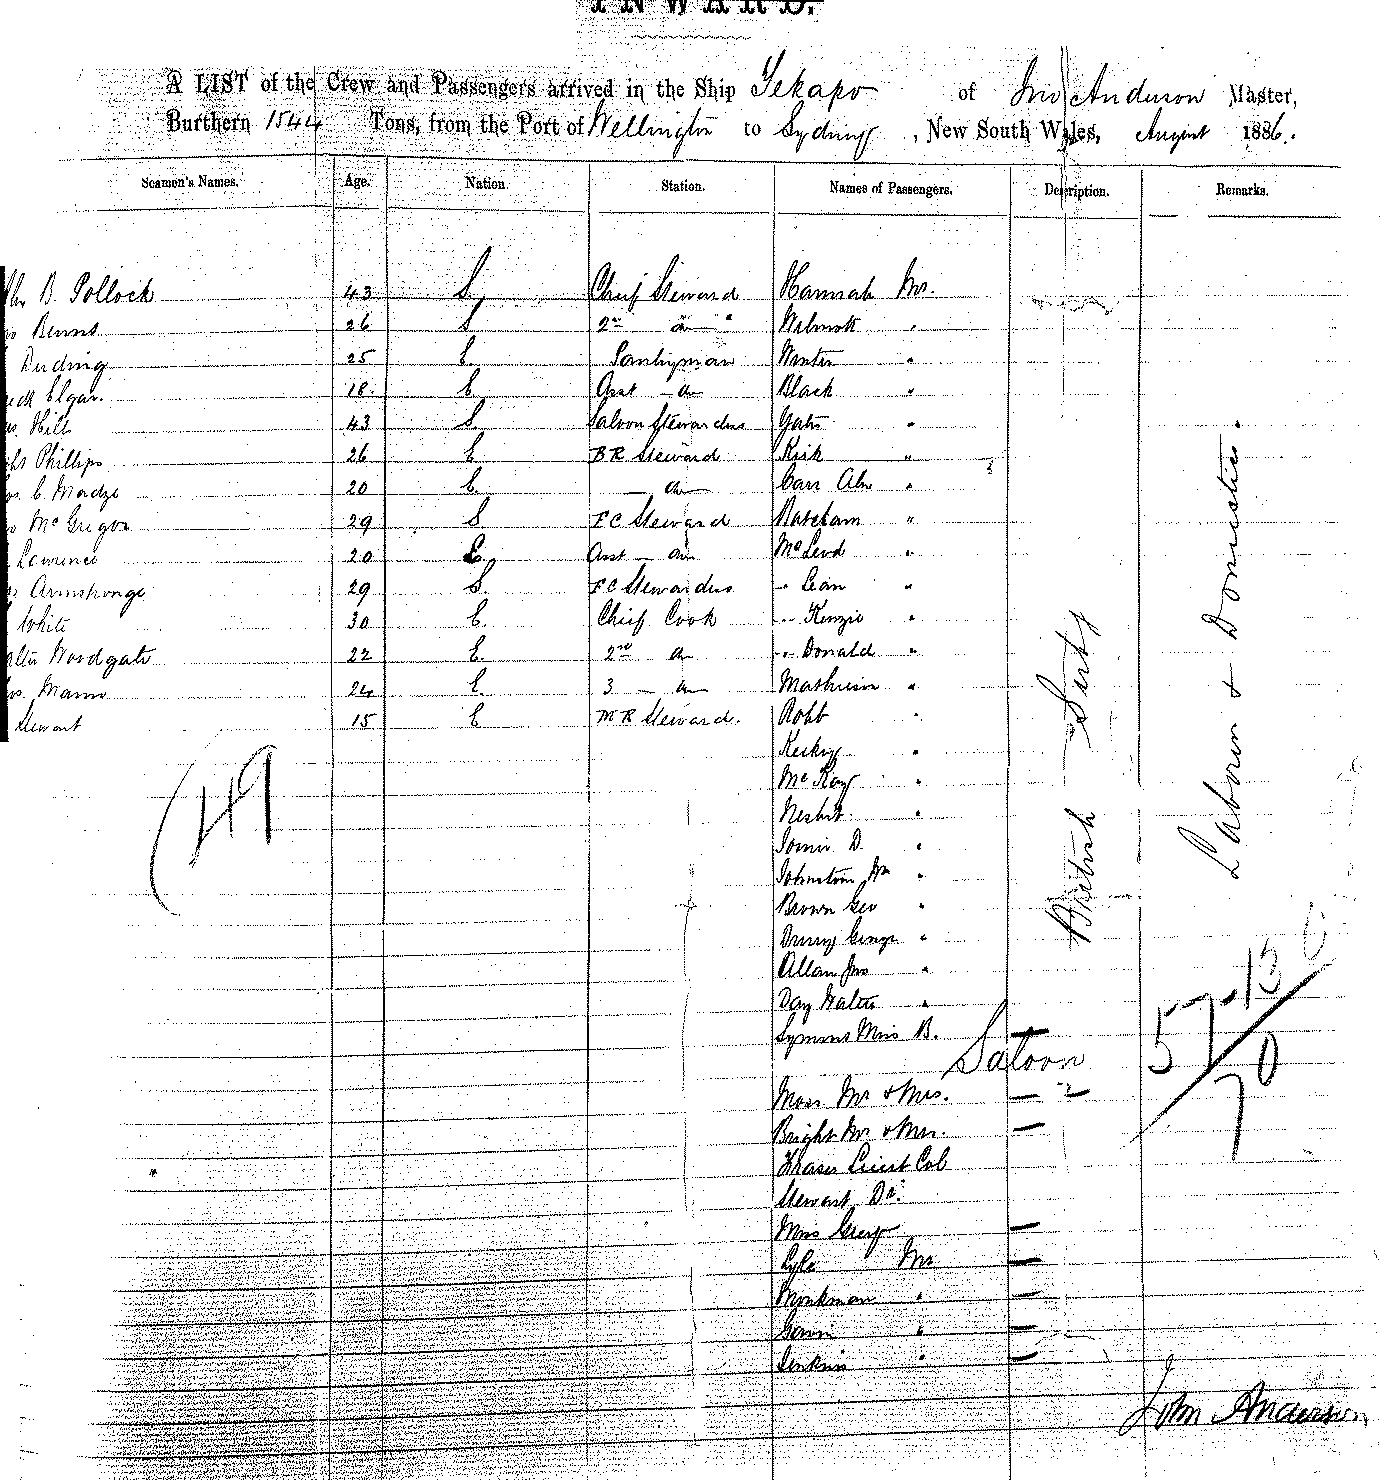 INWARD.
A LIST of the Crew and Passengers arrived in the Ship Tekapo of Jno Anderson Master,
Burthern 1544 Tons, from the Port of Wellington to Sydney, New South Wales, August 1886.
Seamen's Names. Age. Nation. Station. Names of Passengers. Description. Remarks.
B. Pollock 43 S Chief Steward Hannah Mr.
Burns 26 S 2nd do " Wilmott "
Duding 25 E Pantryman Winter "
Elgar. 18 E Asst do Black "
Hill 43 S Saloon Stewardess Yates "
Phillips 26 E BR Steward Kirk "
C. Madze 20 E do Carr "
McGregor 29 S FC Steward "
Lawrence 20 E Asst do McLeod "
Armstronge 29 S FC Stewardess " Lean "
White 30 E Chief Cook " Kenzie "
Walter Woodgate 22 E 2nd do " Donald "
Mann 24 E 3 do Mathieson "
Stewart 15 E MR Steward. Robb "
"
McKay "
Nesbit "
D. "
Johnston Wm "
Brown Geo "
George "
Allan Jno "
Day Walter "
Symons Miss B.
British
Labourers & Domestics.
(49
Saloon
Moss Mr & Mrs. 2
Bright Mr & Mrs.
Fraser Lieut Col
Stewart Dr.
Miss Greig
Lyle Mr
Monkman "
"
Jenkins "
57-13
70
John Anderson